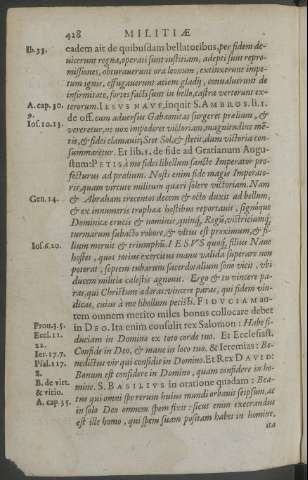 428 MILITIÆ
Ib.33. eadem ait de quibusdam bellatoribus, per fidem de-
uicerunt regna, operati sunt iustitiam, adepti sunt repro-
missiones, obturauerunt ora leonum, extinxerunt impe-
tum ignis, effugauerunt aciem gladij, conualuerunt de
infirmitate, fortes facti sunt in bello, castra verterunt ex-
A. cap. 30. terorum. IESVS NAVE, inquit S. AMBROS. li. 1.
9. de off. cum aduersus Gabaonitas surgeret prælium, &
Ios. 10.13. vereretur, ne nox impediret victoriam, magnitudine me-
tis, & fidei clamauit, Stet Sol; & stetit, dum victoria con-
summaretur. Et lib. 1. de fide ad Gratianum Augu-
stum: PETIS à me fidei libellum sancte Imperator pro-
fecturus ad prælium. Nosti enim fide magis Imperato-
ris, quàm virtute militum quæri solere victoriam. Nam
Gen. 14. & Abraham trecentos decem & octo duxit ad bellum,
& ex innumeris trophæa hostibus reportauit, signóque
Dominicæ crucis & nominis, quinq́, Regũ, victriciumq́,
turmarum subacto robore, & vltus est proximum, & fi-
Ios. 6.20. lium meruit & triumphũ. IESVS quoq́, filius Naue
hostes, quos totius exercitus manu valida superare non
poterat, septem tubarum sacerdotalium sono vicit, vbi
ducem militiæ cælestis agnouit. Ergo & tu vincere pa-
ras, qui Christum adoras: vincere paras, qui fidem vin-
dicas, cuius à me libellum petisti. FIDVCIAM au-
tem omnem merito miles bonus collocare debet
Prou. 3.5. in DEO. Ita enim consulit rex Salomon: Habe fi-
Eccl. 11. duciam in Domino ex toto corde tuo. Et Ecclesiast.
22. Confide in Deo, & mane in loco tuo. & Ieremias: Be-
Ier. 17.7. nedictus vir qui confidit in Domino. Et Rex DAVID:
Psal. 117. Bonum est confidere in Domino, quam confidere in ho-
8. mine. S. BASILIVS in oratione quadam: Bea-
B. de virt. tus qui omni spe rerum huius mundi orbauit seipsum, ac
& vicio. in solo Deo omnem spem fixit: sicut enim execrandus
A. cap. 35. est ille homo, qui spem suam positam habet in homine,
ita